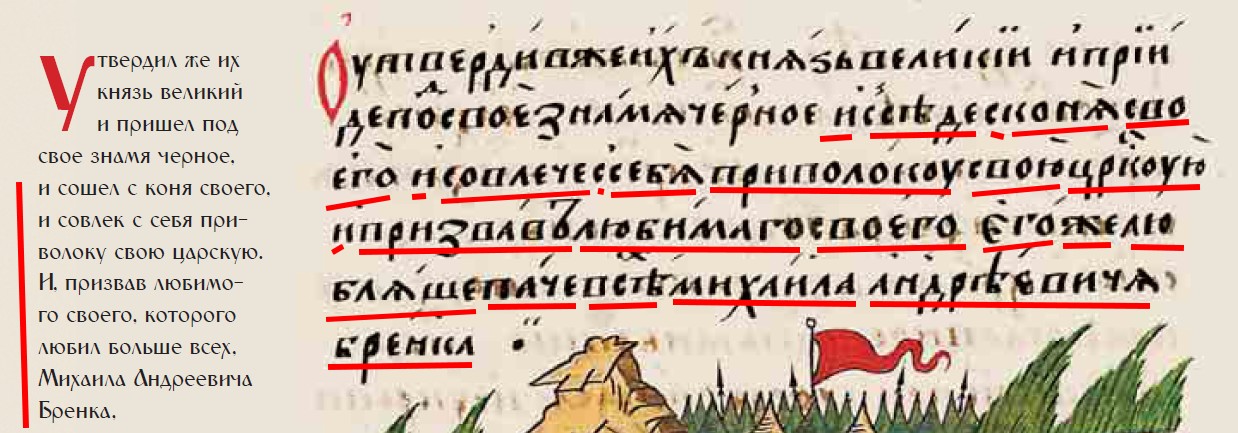 Утвердил же их
князь великий
и пришел под
свое знамя черное,
и сошел с коня своего,
и совлек с себя при-
волоку свою царскую.
И, призвав любимо-
го своего, которого
любил больше всех,
Михаила Андреевича
Бренка,
Оутвердивжеихъкнѧзьвеликїи ипрїи
депосвоезнамѧчерное исседесконѧсво
его исовлечессебѧприволокоусвоюцр҃коую
ипризвавлюбимагосвоего егожелю
блѧшепачевсѣмихаилаандрѣевичѧ
бренка